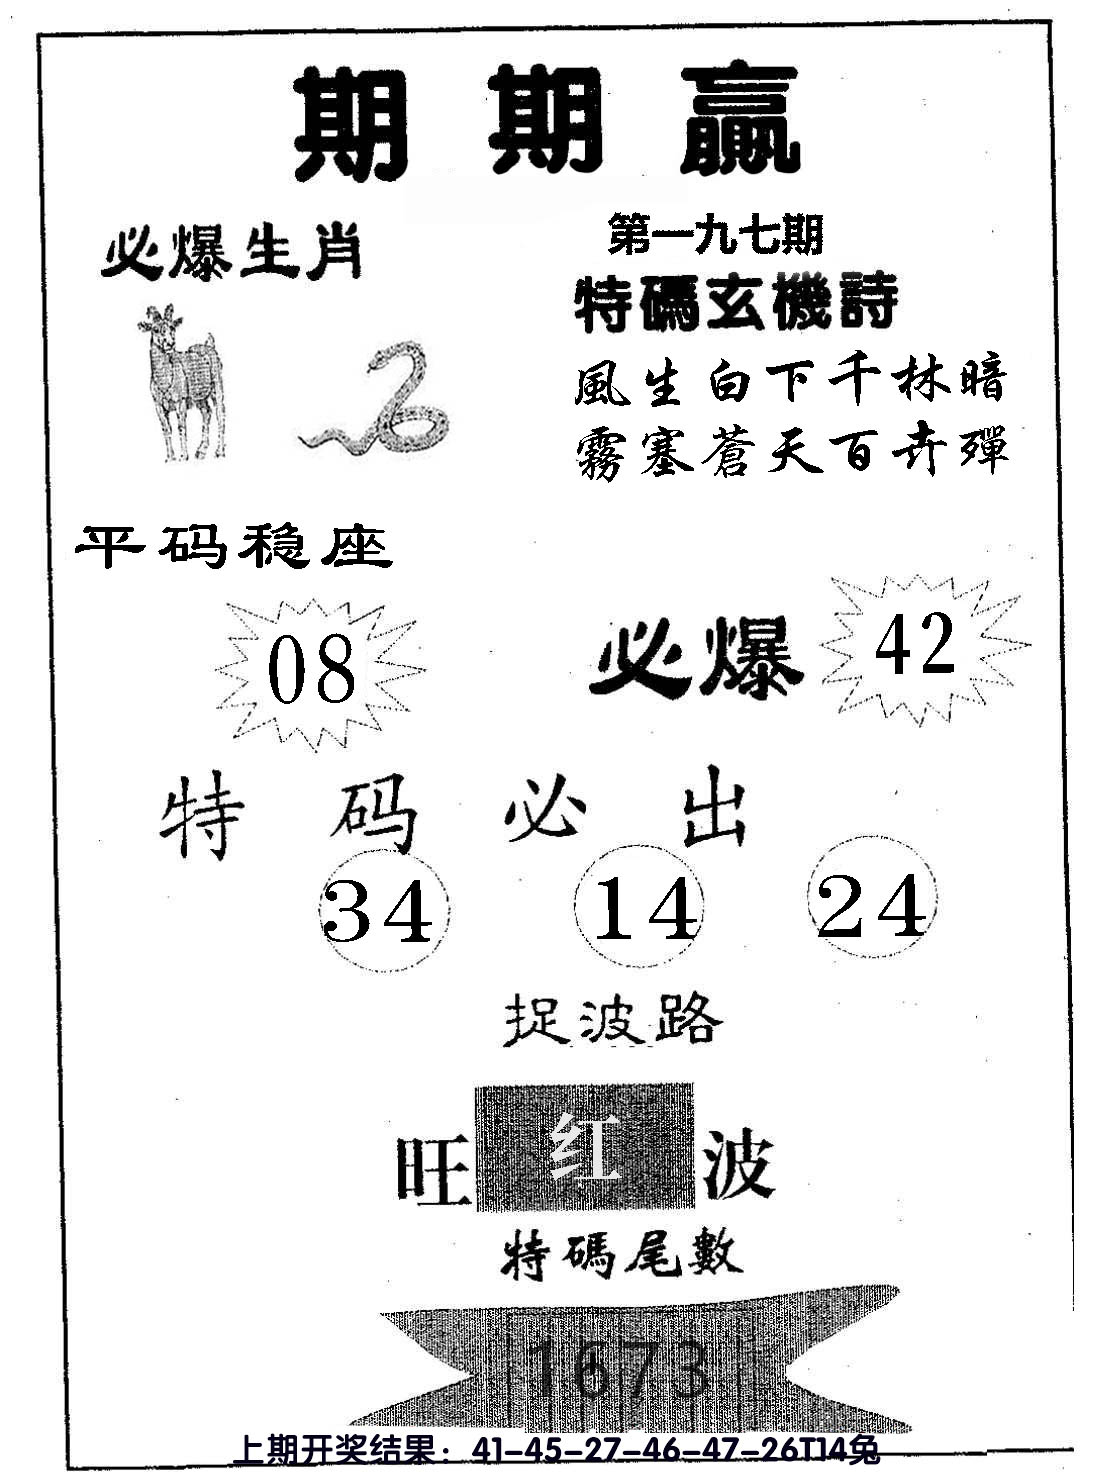 期期赢
必爆生肖
第一九七期
特碼玄機詩
風生白下千林暗
霧塞蒼天百卉殫
平码稳座
08
必爆
42
特码必出
34 14 24
捉波路
旺红波
特碼尾數
1673
上期开奖结果：41-45-27-46-47-26T14兔